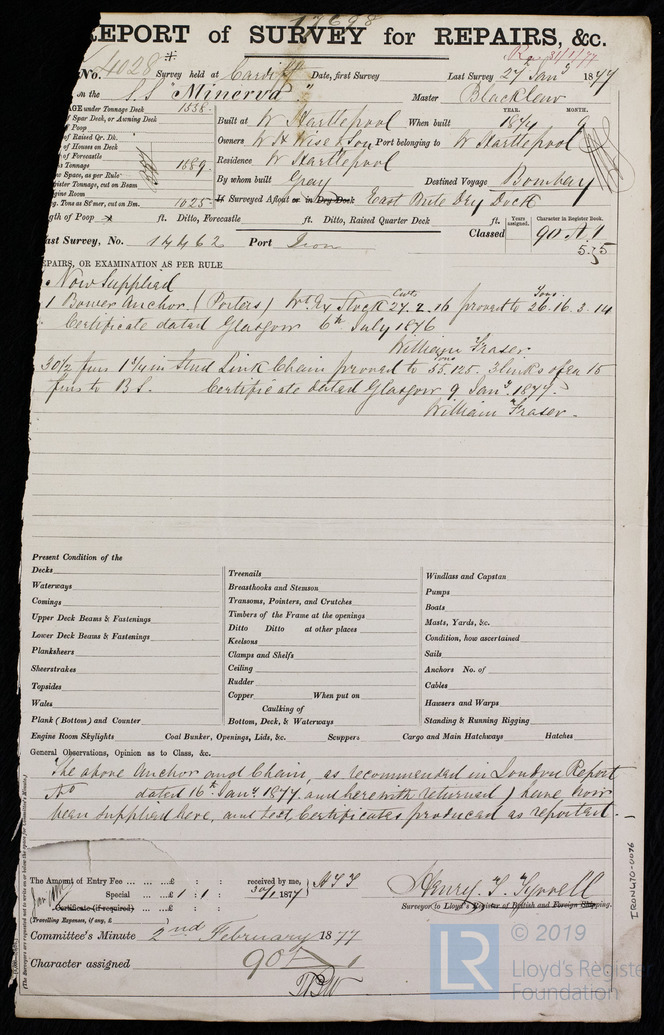 17698
REPORT of SURVEY for REPAIRS, &c.
Rec 31/1/77
No. 4028 Survey held at Cardiff Date, first Survey Last Survey 27 Jany 1877
on the S.S "Minerva" Master Blacklow
AGE under Tonnage Deck 1558
of Spar Deck, or Awning Deck
of Poop
of Raised Qr. Dk.
of Houses on Deck
of Forecastle
s Tonnage 1589
ow Space, as per Rule
gister Tonnage, cut on Beam
ngine Room
g. Tons as St'mer, cut on Bm. 1025
YEAR. MONTH.
Built at W Hartlepool When built 1874 9
Owners W H Wise & Son Port belonging to W Hartlepool
Residence W Hartlepool
By whom built Gray Destined Voyage Bombay
If Surveyed Afloat or in Dry Dock East Bute Dry Dock
gth of Poop ft. Ditto, Forecastle ft. Ditto, Raised Quarter Deck ft.
Years assigned. Character in Register Book.
ast Survey, No. 14462 Port Iron Classed 90 A.1
5.75
EPAIRS, OR EXAMINATION AS PER RULE
Now Supplied
1 Bower Anchor. (Porters) Wt Ex Stock Cwts 27.2.16 proved to Tons 26.16.3.14
Certificate dated Glasgow 6th July 1876
William Fraser
30 1/2 fms 1 3/4 in Stud Link Chain proved to Tons 55.125. 3 links of ea 15
fms to B S. Certificate dated Glasgow 9 Jany 1877.
William Fraser.
Present Condition of the
Decks
Waterways
Comings
Upper Deck Beams & Fastenings
Lower Deck Beams & Fastenings
Planksheers
Sheerstrakes
Topsides
Wales
Plank (Bottom) and Counter
Treenails
Breasthooks and Stemson
Transoms, Pointers, and Crutches
Timbers of the Frame at the openings
Ditto Ditto at other places
Keelsons
Clamps and Shelfs
Ceiling
Rudder
Copper When put on
Caulking of
Bottom, Deck, & Waterways
Windlass and Capstan
Pumps
Boats
Masts, Yards, &c.
Condition, how ascertained
Sails
Anchors No. of
Cables
Hawsers and Warps
Standing & Running Rigging
Engine Room Skylights Coal Bunker, Openings, Lids, &c. Scuppers Cargo and Main Hatchways Hatches
General Observations, Opinion as to Class, &c.
The above Anchor and Chain, as recommended in London Report
No dated 16th Jany 1877 and herewith returned) have now
been supplied here, and test Certificates produced as reported.
The Amount of Entry Fee ... £ : : received by me,
Special ... £ 1 : 1 : 30/1 1877
Certificate (if required)
(Travelling Expenses, if any, £ )
Henry T. Tyrrell
Surveyor to Lloyd's Register of British and Foreign Shipping.
Committee's Minute 2nd February 1877
Character assigned 90 A 1
IRON670-0076
LR
© 2019
Lloyd's Register
Foundation